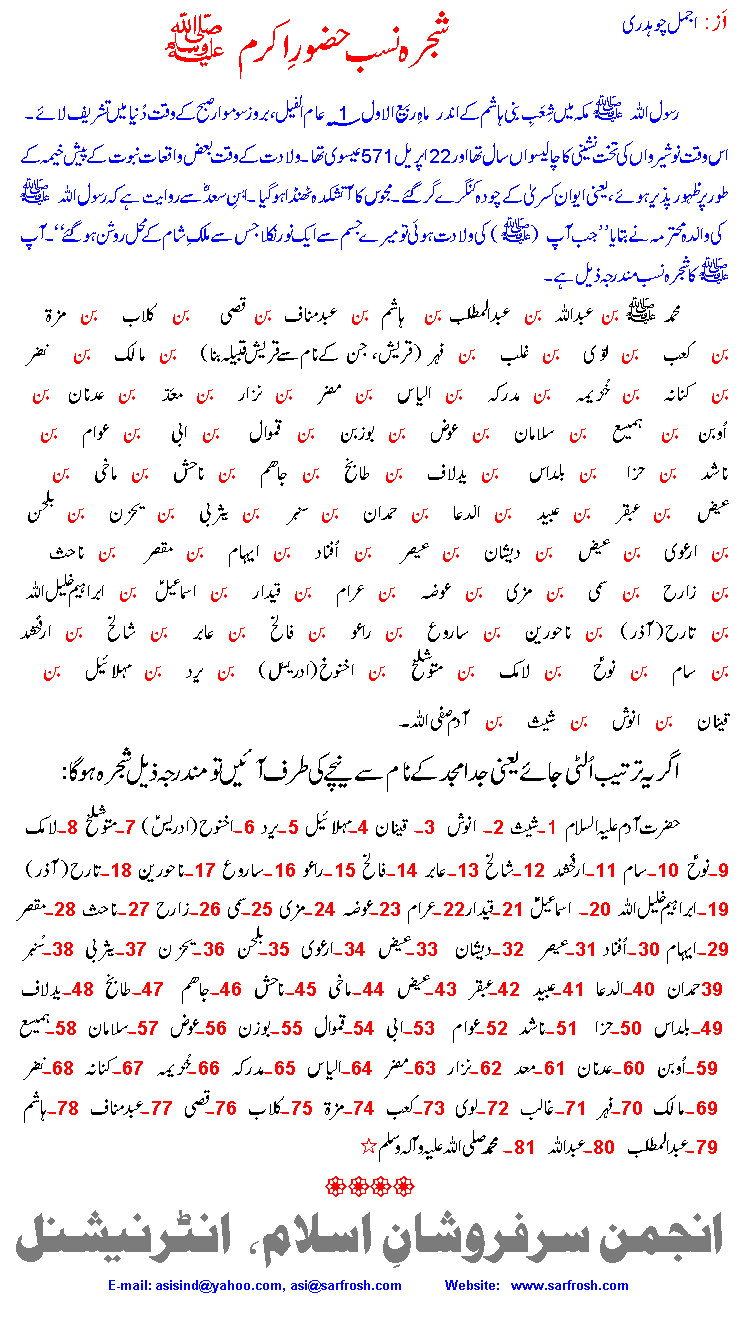 از: اجمل چوہدری
شجرہ نسب حضورِ اکرم ﷺ
رسول اللہ ﷺ مکہ میں شِعَبِ بنی ہاشم کے اندر ماہِ ربیع الاول 1 عام الفیل، بروز سوموار صبح کے وقت دُنیا میں تشریف لائے۔
اس وقت نوشیرواں کی تخت نشینی کا چالیسواں سال تھا اور 22 اپریل 571 عیسوی تھا۔ ولادت کے وقت بعض واقعات نبوت کے پیش خیمہ کے
طور پر ظہور پذیر ہوئے، یعنی ایوان کسریٰ کے چودہ کنگرے گر گئے۔ مجوس کا آتشکدہ ٹھنڈا ہوگیا۔ ابنِ سعدؓ سے روایت ہے کہ رسول اللہ ﷺ
کی والدہ محترمہ نے بتایا ’’جب آپ (ﷺ) کی ولادت ہوئی تو میرے جسم سے ایک نور نکلا جس سے ملکِ شام کے محل روشن ہوگئے‘‘۔ آپ
ﷺ کا شجرہ نسب مندرجہ ذیل ہے۔
محمد ﷺ بن عبداللہ بن عبدالمطلب بن ہاشم بن عبدمناف بن قصی بن کلاب بن مرۃ
بن کعب بن لوّی بن غلب بن فہر (قریش، جن کے نام سے قریش قبیلہ بنا) بن مالک بن نضر
بن کنانہ بن خُزیمہ بن مدرکہ بن الیاس بن مضر بن نزار بن معدّ بن عدنان بن
اُوبن بن ہمیسع بن سلامان بن عوض بن بوزبن بن قموال بن ابی بن عوام بن
ناشد بن حزا بن بلداس بن یدلاف بن طابخ بن جاھم بن ناحش بن ماخی بن
عیض بن عبقر بن عبید بن الدعا بن حمدان بن سنبر بن یثربی بن یحزن بن بلحن
بن ارعوی بن عیض بن دیشان بن عیصر بن اُفناد بن ایہام بن مقصر بن ناحث
بن زارح بن سمی بن مزی بن عوضہ بن عرام بن قیدار بن اسماعیلؑ بن ابراہیم خلیل اللہ
بن تارح (آذر) بن ناحورین بن ساروع بن راعو بن فالخ بن عابر بن شالخ بن ارفحشد
بن سام بن نوحؑ بن لامک بن متوشلخ بن اخنوخ (ادریسؑ) بن یرد بن مہلائیل بن
قینان بن انوش بن شیث بن آدم صفی اللہ۔
اگر یہ ترتیب اُلٹی جائے یعنی جد امجد کے نام سے نیچے کی طرف آئیں تو مندرجہ ذیل شجرہ ہوگا:
حضرت آدم علیہ السلام 1۔شیث 2۔ انوش 3۔ قینان 4۔مہلائیل 5۔یرد 6۔اخنوح (ادریسؑ) 7۔متوشلخ 8۔لامک
9۔نوحؑ 10۔سام 11۔ارفحشد 12۔شالخ 13۔عابر 14۔فالخ 15۔راعو 16۔ساروع 17۔ناحورین 18۔تارح (آذر)
19۔ابراہیم خلیل اللہ 20۔ اسماعیلؑ 21۔قیدار 22۔عرام 23۔عوضہ 24۔مزی 25۔سمی 26۔زارح 27۔ناحث 28۔مقصر
29۔ایہام 30۔اُفناد 31۔عیصر 32۔دیشان 33۔عیض 34۔ارعوی 35۔بلحن 36۔یحزن 37۔یثربی 38۔سُنبر
39حمدان 40۔الدعا 41۔عبید 42۔عبقر 43۔عیض 44۔ماخی 45۔ناحش 46۔جاھم 47۔طابخ 48۔یدلاف
49۔بلداس 50۔حزا 51۔ناشد 52۔عوام 53۔ابی 54۔قموال 55۔بوزن 56۔عوض 57۔سلامان 58۔ہمیسع
59۔اُوبن 60۔عدنان 61۔معد 62۔نزار 63۔مضر 64۔الیاس 65۔مدرکہ 66۔خُزیمہ 67۔کنانہ 68۔نضر
69۔مالک 70۔فہر 71۔غالب 72۔لوی 73۔کعب 74۔مرۃ 75۔کلاب 76۔قصی 77۔عبدمناف 78۔ہاشم
79۔عبدالمطلب 80۔عبداللہ 81۔ محمد صلی اللہ علیہ وآلہ وسلم☆
انجمن سرفروشانِ اسلام، انٹرنیشنل
E-mail: asisind@yahoo.com, asi@sarfrosh.com Website: www.sarfrosh.com